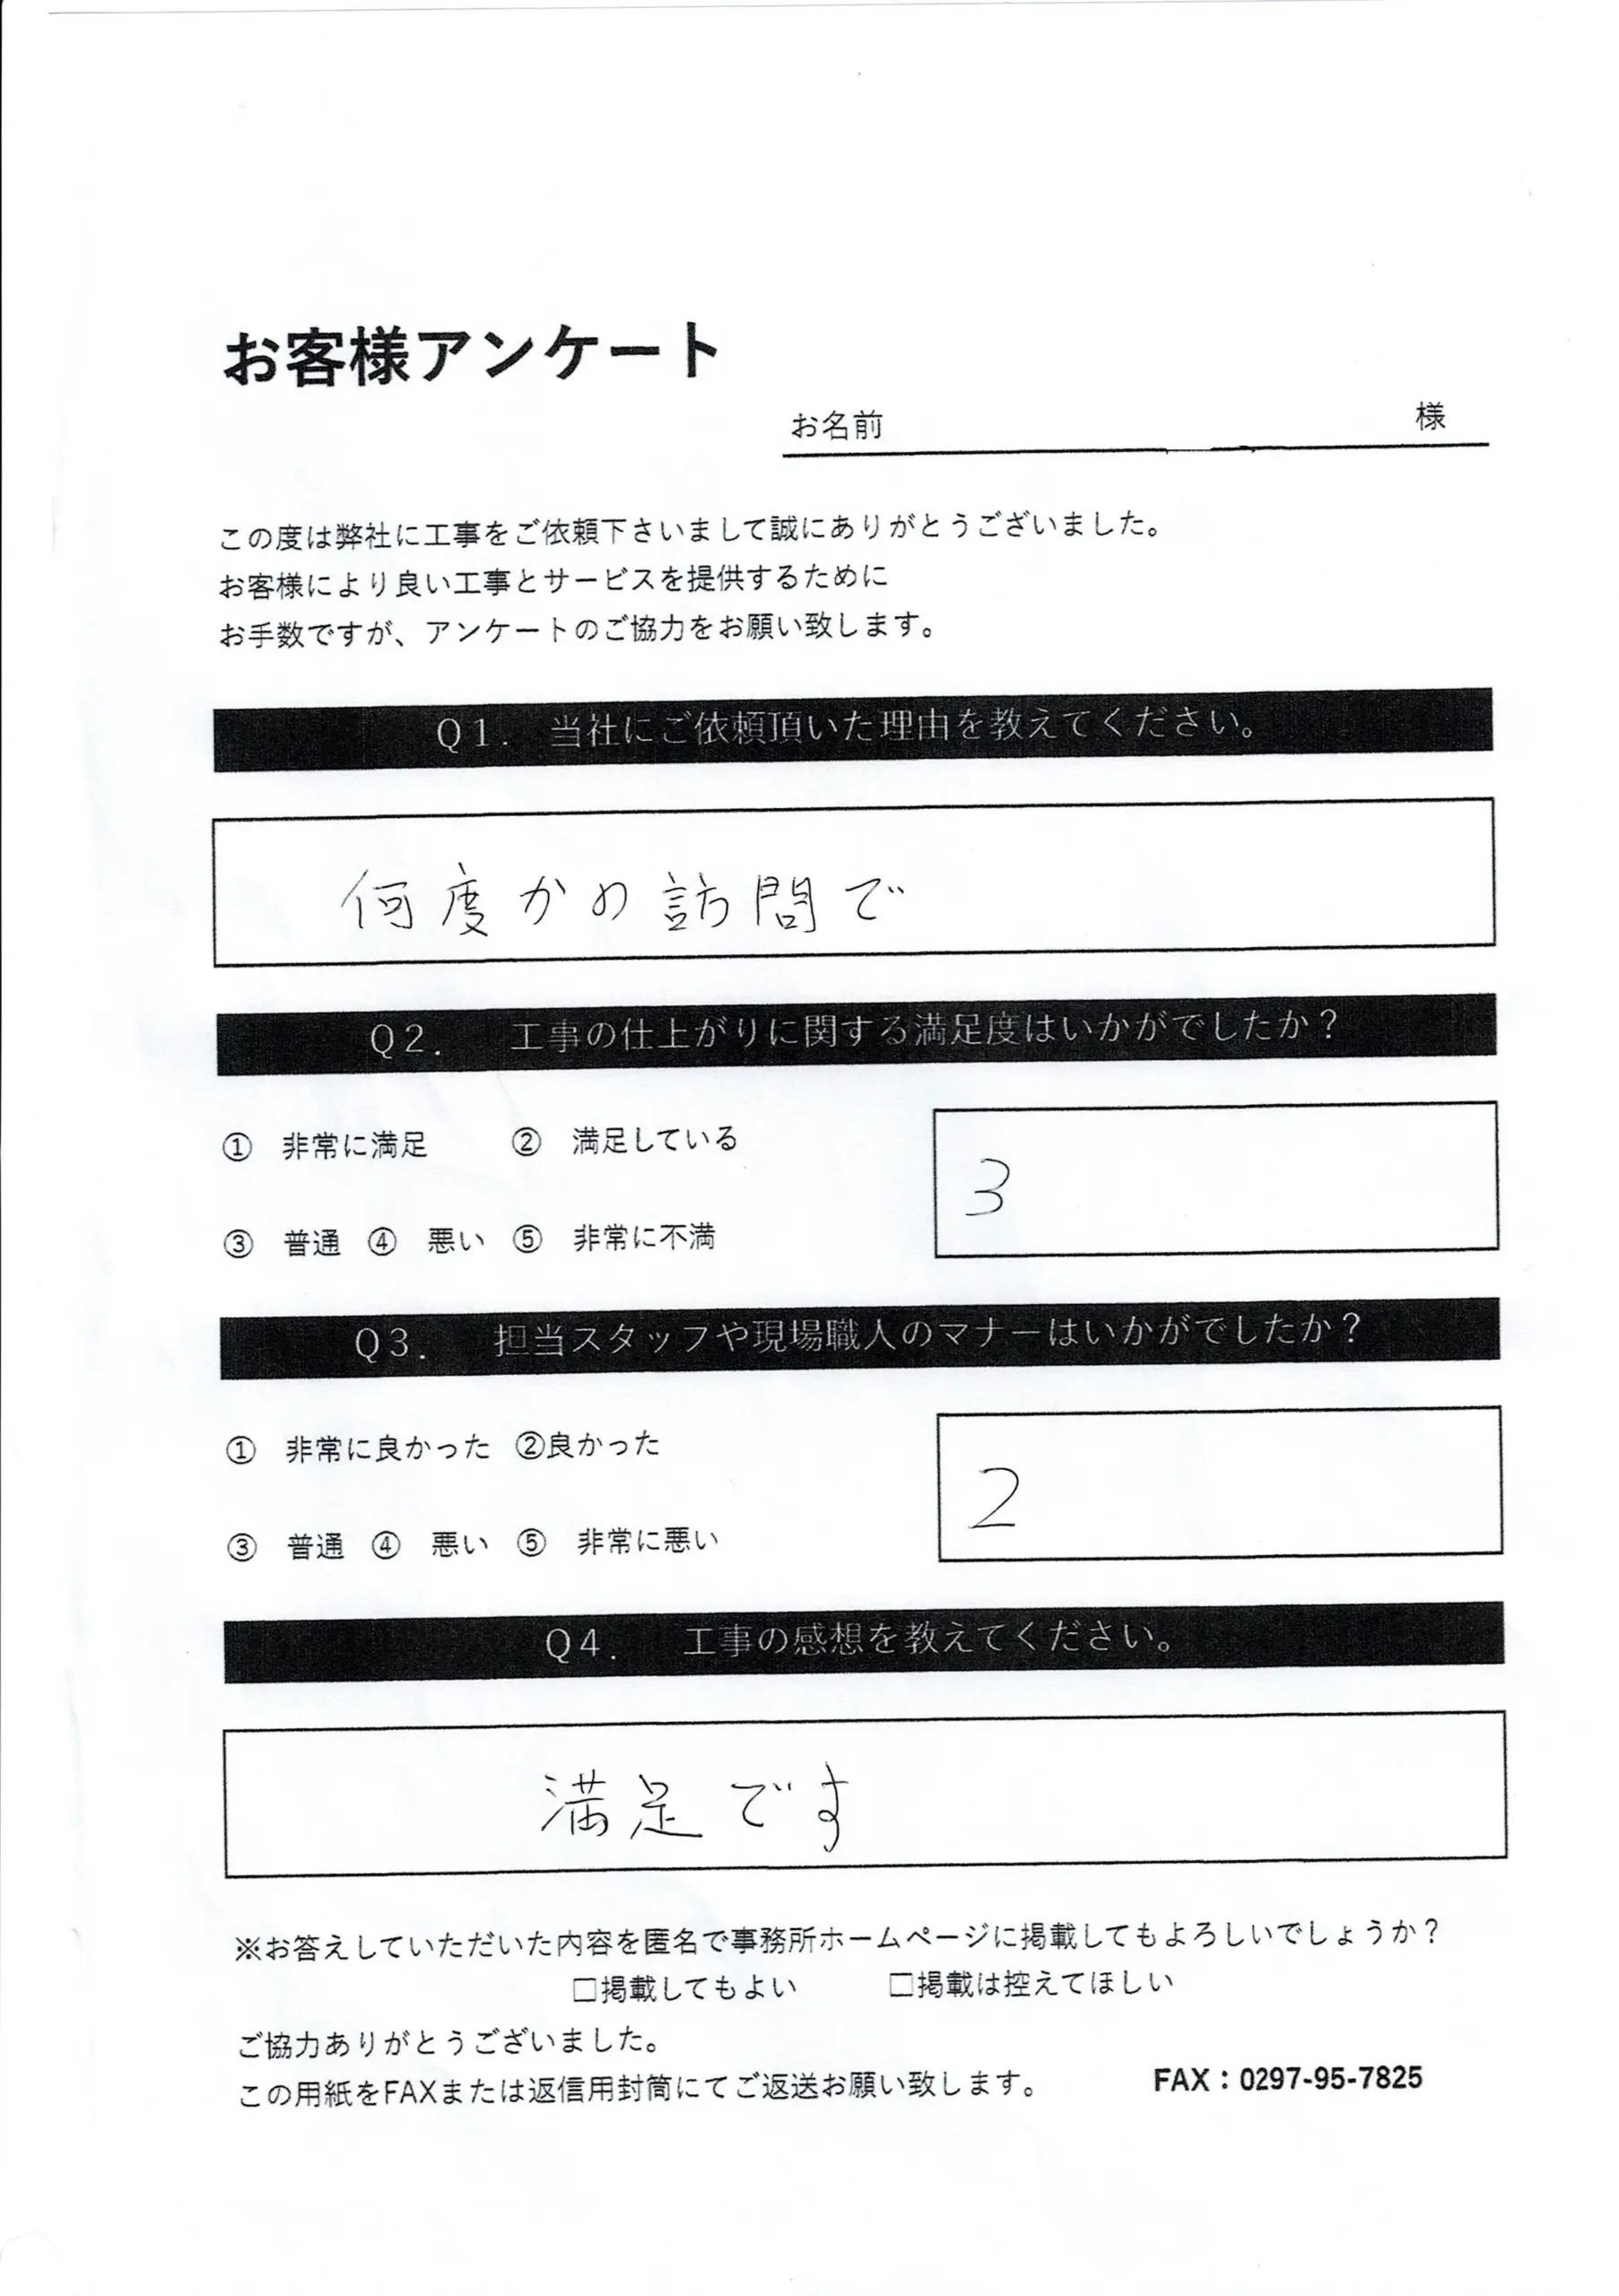 お客様アンケート
お名前 様
この度は弊社に工事をご依頼下さいまして誠にありがとうございました。
お客様により良い工事とサービスを提供するために
お手数ですが、アンケートのご協力をお願い致します。
Q1. 当社にご依頼頂いた理由を教えてください。
何度かの訪問で
Q2. 工事の仕上がりに関する満足度はいかがでしたか？
① 非常に満足 ② 満足している
3
③ 普通 ④ 悪い ⑤ 非常に不満
Q3. 担当スタッフや現場職人のマナーはいかがでしたか？
① 非常に良かった ②良かった
2
③ 普通 ④ 悪い ⑤ 非常に悪い
Q4. 工事の感想を教えてください。
満足です
※お答えしていただいた内容を匿名で事務所ホームページに掲載してもよろしいでしょうか？
□掲載してもよい □掲載は控えてほしい
ご協力ありがとうございました。
この用紙をFAXまたは返信用封筒にてご返送お願い致します。 FAX：0297-95-7825